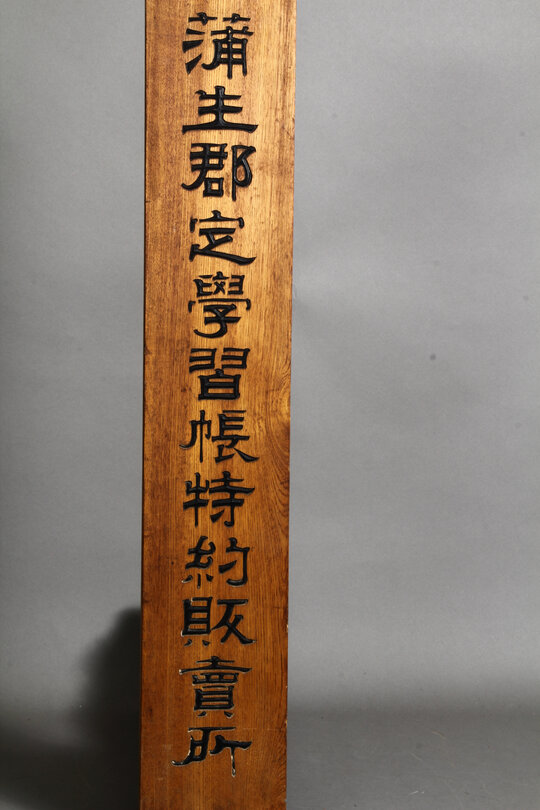 蒲生郡定學習帳特約販賣所